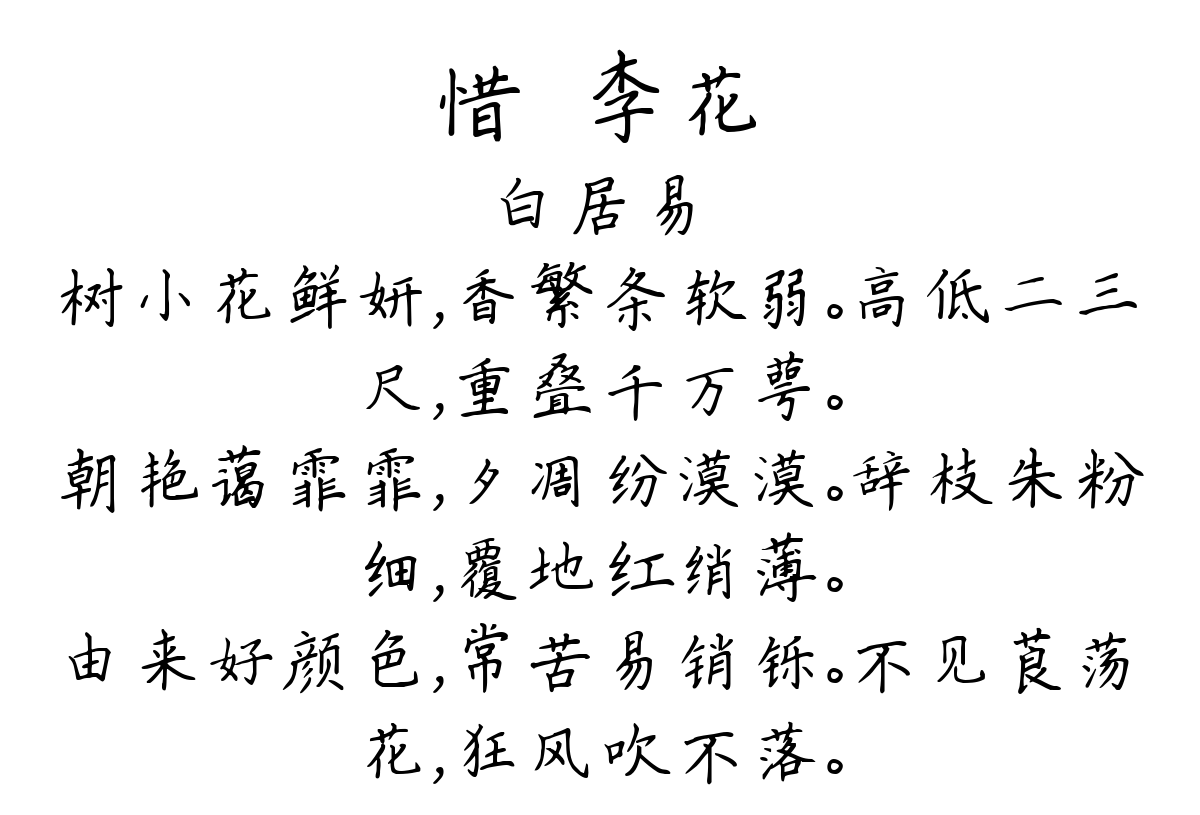 惜 李花
白居易
树小花鲜妍,香繁条软弱。高低二三
尺,重叠千万萼。
朝艳蔼霏霏,夕凋纷漠漠。辞枝朱粉
细,覆地红绡薄。
由来好颜色,常苦易销铄。不见莨荡
花,狂风吹不落。